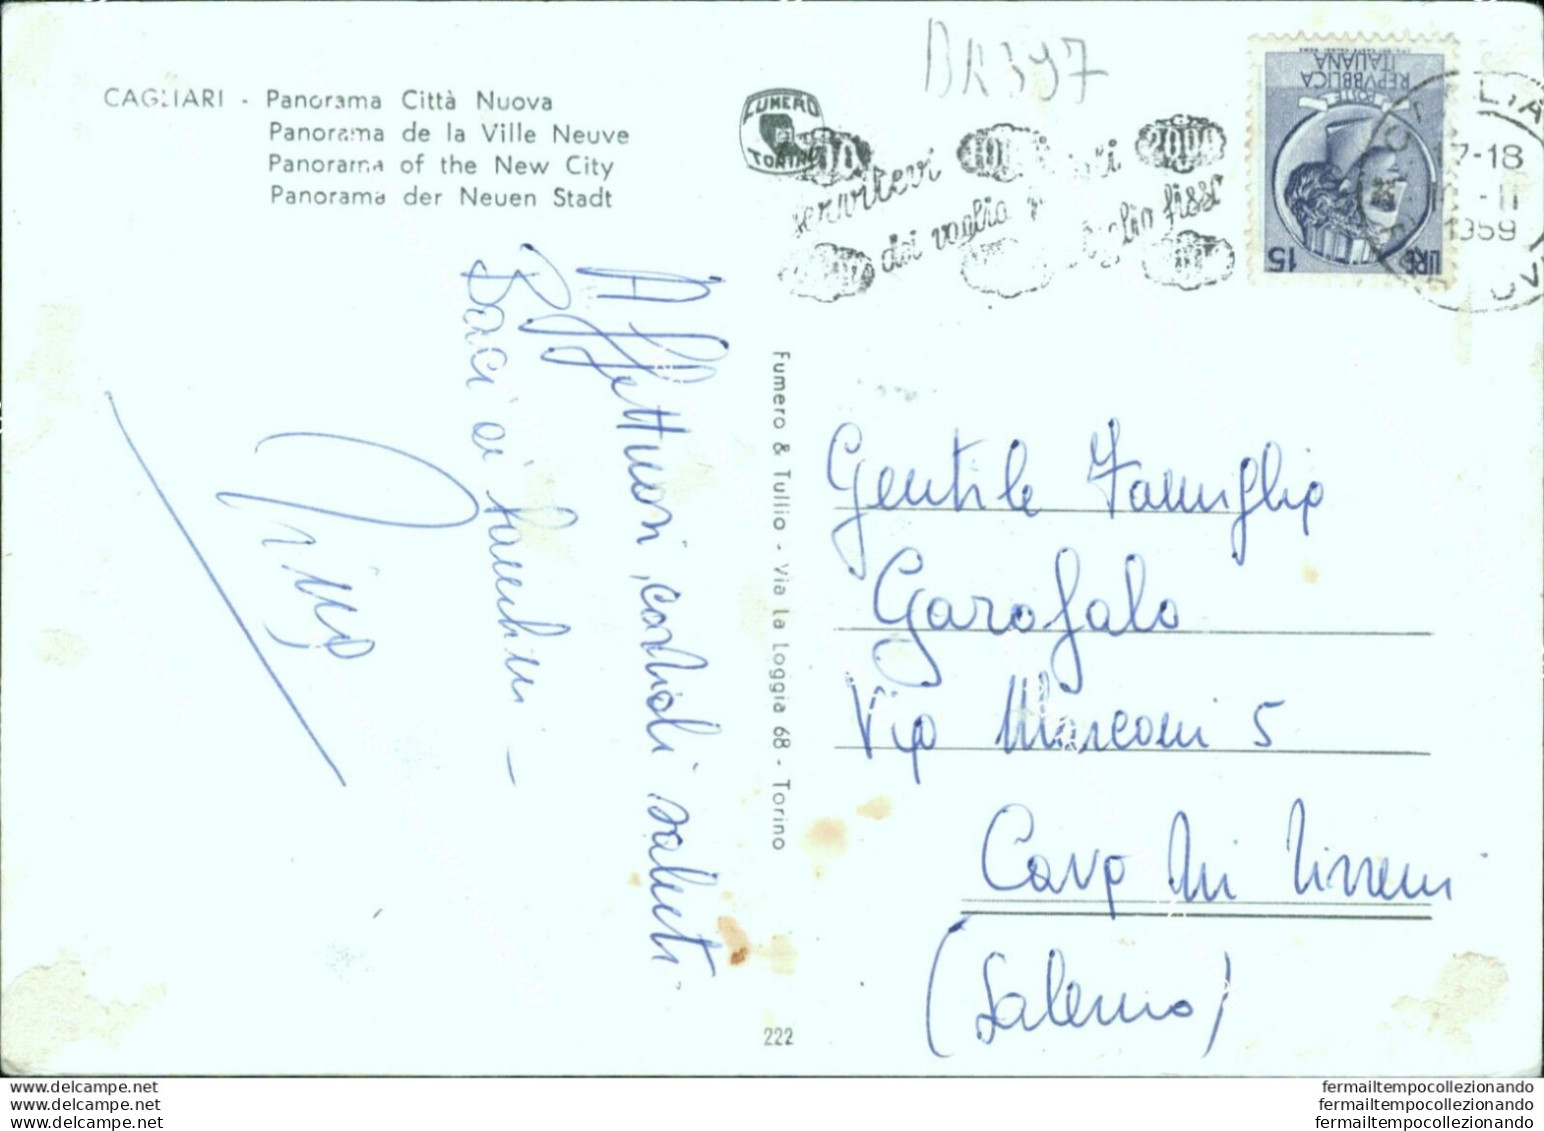 CAGLIARI - Panorama Città Nuova
Panorama de la Ville Neuve
Panorama of the New City
Panorama der Neuen Stadt
BR397
FUMERO
TORINO
servitevi
dei vaglia
vaglia fisso
2000
REPVBBLICA
ITALIANA
POSTE
LIRE 15
17-18
1959
Affettuosi, cordiali saluti
Baci ai bambini -
Pina
Fumero & Tullio - Via La Loggia 68 - Torino
222
Gentile Famiglia
Garofalo
Via Marconi 5
Cava dei Tirreni
(Salerno)
www.delcampe.net
www.delcampe.net
www.delcampe.net
fermailtempocollezionando
fermailtempocollezionando
fermailtempocollezionando